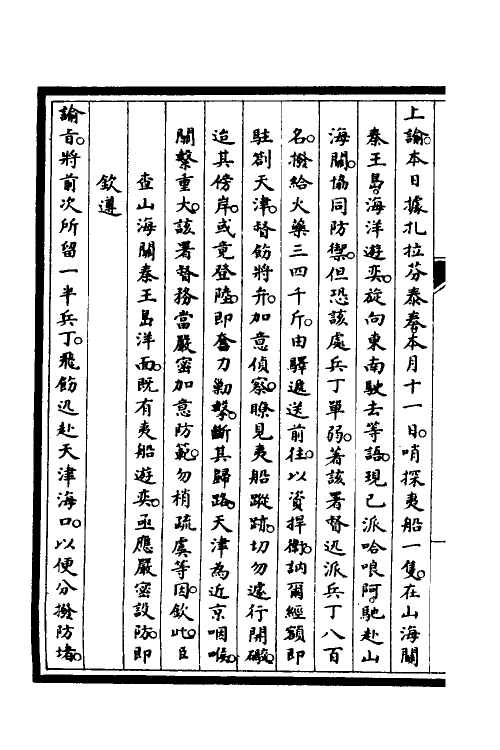 上諭。本日據扎拉芬泰奏。本月十一日。哨探夷船一隻。在山海關
秦王島。海洋遊奕。旋向東南駛去等語。現已派哈哴阿。馳赴山
海關。協同防禦。但恐該處兵丁單弱。著該署督迅派兵丁八百
名。撥給火藥三四千斤。由驛遞送前往。以資捍衞。訥爾經額即
駐劄天津。督飭將弁。加意偵察。瞭見夷船蹤跡。切勿遽行開礟。
迨其傍岸。或竟登陸。即奮力勦擊。斷其歸路。天津為近京咽喉。
關繫重大。該署督務當嚴密加意防範。勿稍疏虞等因。欽此。臣
查山海關秦王島洋面。既有夷船遊奕。亟應嚴密設防。即
欽遵
諭旨。將前次所留一半兵丁。飛飭迅赴天津海口。以便分撥防堵。